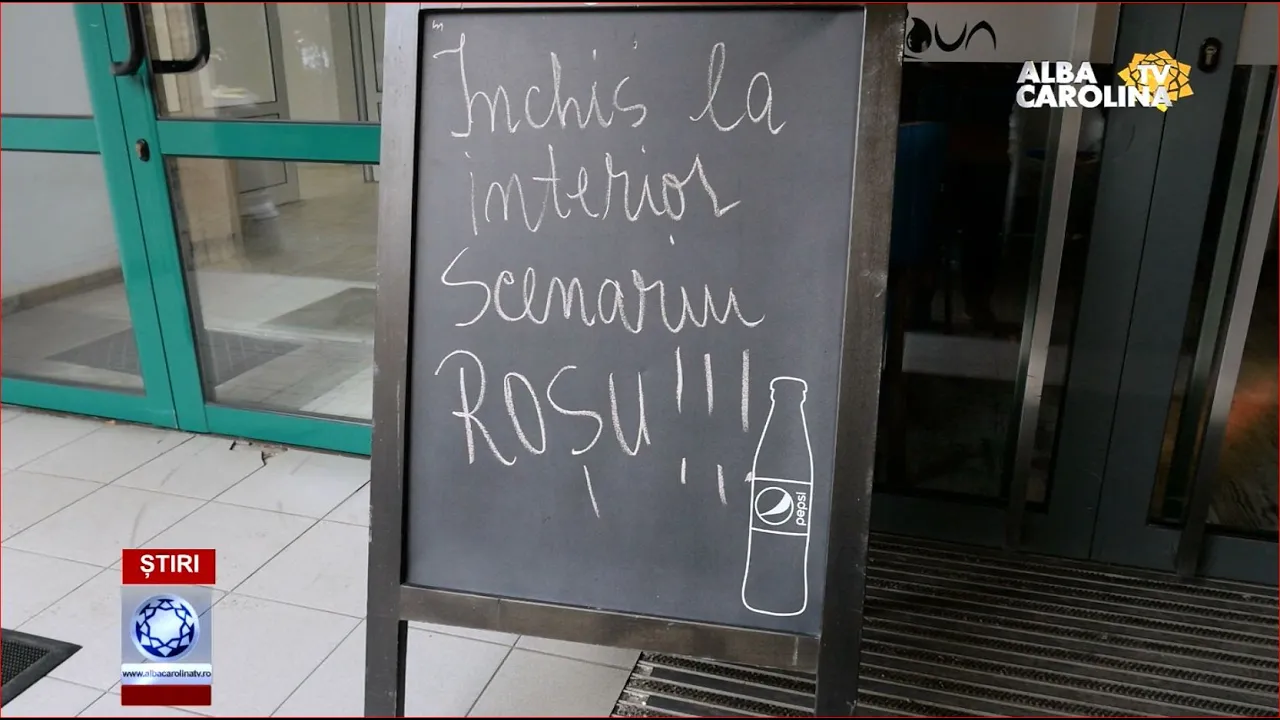 Inchis la
interior
Scenariu
ROȘU !!!
pepsi
ALBA
CAROLINA TV
ȘTIRI
www.albacarolinatv.ro